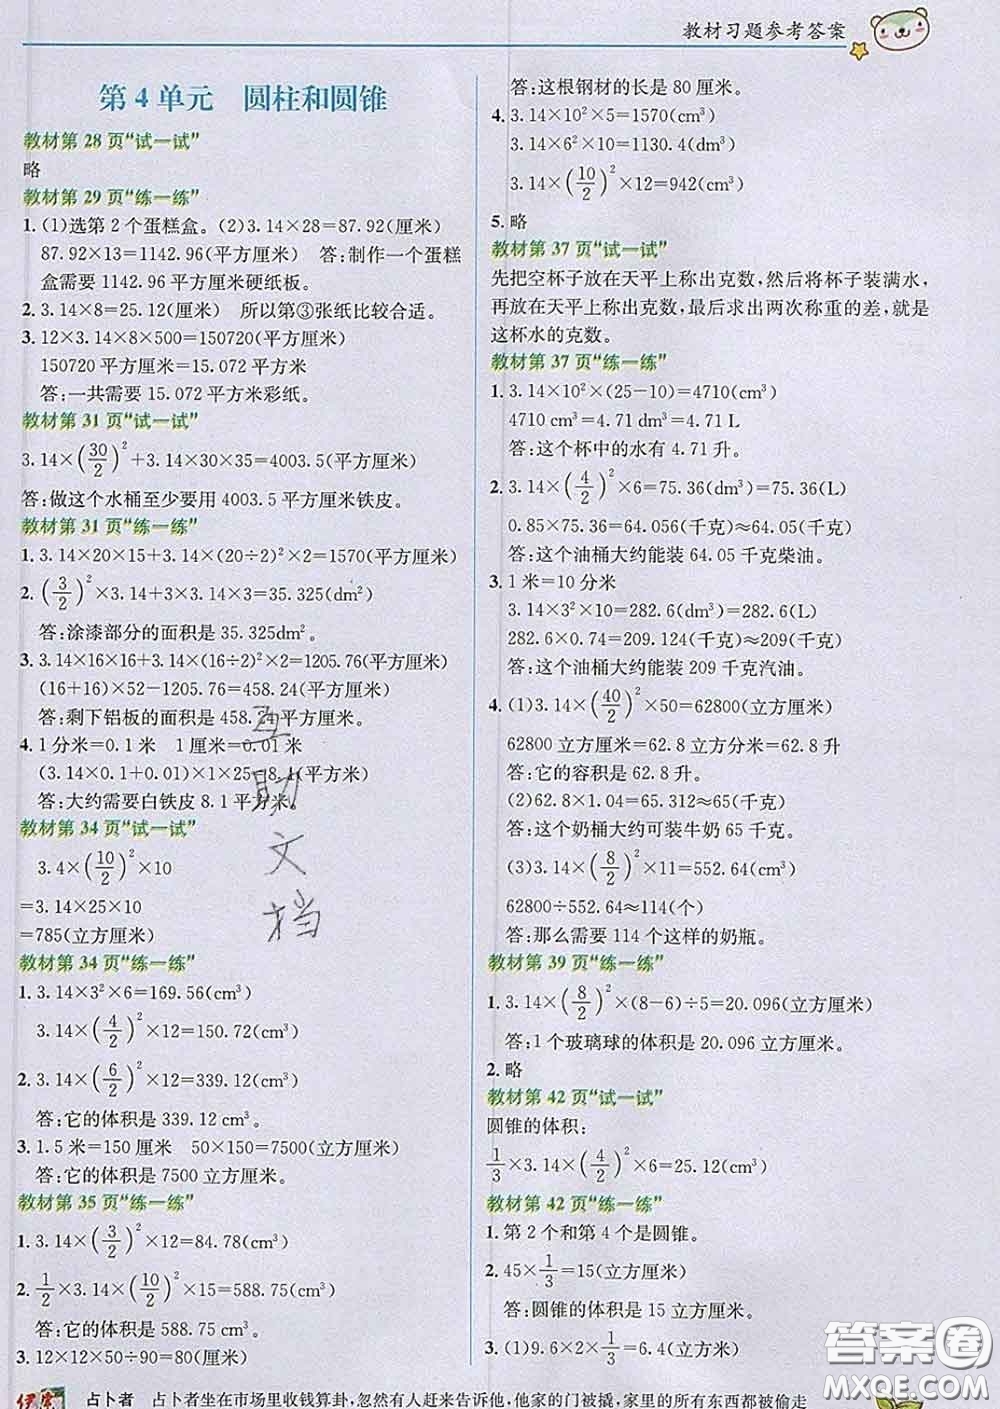 教材习题参考答案
第 4 单元 圆柱和圆锥
教材第 28 页“试一试”
略
教材第 29 页“练一练”
1. (1)选第 2 个蛋糕盒。(2)3.14×28=87.92(厘米)
87.92×13=1142.96(平方厘米) 答:制作一个蛋糕
盒需要 1142.96 平方厘米硬纸板。
2. 3.14×8=25.12(厘米) 所以第③张纸比较合适。
3. 12×3.14×8×500=150720(平方厘米)
150720 平方厘米=15.072 平方米
答:一共需要 15.072 平方米彩纸。
教材第 31 页“试一试”
3.14×(30/2)²+3.14×30×35=4003.5(平方厘米)
答:做这个水桶至少要用 4003.5 平方厘米铁皮。
教材第 31 页“练一练”
1. 3.14×20×15+3.14×(20÷2)²×2=1570(平方厘米)
2. (3/2)²×3.14+3×3.14×3=35.325(dm²)
答:涂漆部分的面积是 35.325dm²。
3. 3.14×16×16+3.14×(16÷2)²×2=1205.76(平方厘米)
(16+16)×52-1205.76=458.24(平方厘米)
答:剩下铝板的面积是 458.24平方厘米。
4. 1 分米=0.1 米 1 厘米=0.01 米
(3.14×0.1+0.01)×1×25=8.1(平方米)
答:大约需要白铁皮 8.1 平方米。
教材第 34 页“试一试”
3.4×(10/2)²×10
=3.14×25×10
=785(立方厘米)
教材第 34 页“练一练”
1. 3.14×3²×6=169.56(cm³)
3.14×(4/2)²×12=150.72(cm³)
2. 3.14×(6/2)²×12=339.12(cm³)
答:它的体积是 339.12 cm³。
3. 1.5 米=150 厘米 50×150=7500(立方厘米)
答:它的体积是 7500 立方厘米。
教材第 35 页“练一练”
1. 3.14×(3/2)²×12=84.78(cm³)
2. 1/2×3.14×(10/2)²×15=588.75(cm³)
答:它的体积是 588.75 cm³。
3. 12×12×50÷90=80(厘米)
答:这根钢材的长是 80 厘米。
4. 3.14×10²×5=1570(cm³)
3.14×6²×10=1130.4(dm³)
3.14×(10/2)²×12=942(cm³)
5. 略
教材第 37 页“试一试”
先把空杯子放在天平上称出克数,然后将杯子装满水,
再放在天平上称出克数,最后求出两次称重的差,就是
这杯水的克数。
教材第 37 页“练一练”
1. 3.14×10²×(25-10)=4710(cm³)
4710 cm³=4.71 dm³=4.71 L
答:这个杯中的水有 4.71 升。
2. 3.14×(4/2)²×6=75.36(dm³)=75.36(L)
0.85×75.36=64.056(千克)≈64.05(千克)
答:这个油桶大约能装 64.05 千克柴油。
3. 1 米=10 分米
3.14×3²×10=282.6(dm³)=282.6(L)
282.6×0.74=209.124(千克)≈209(千克)
答:这个油桶大约能装 209 千克汽油。
4. (1)3.14×(40/2)²×50=62800(立方厘米)
62800 立方厘米=62.8 立方分米=62.8 升
答:它的容积是 62.8 升。
(2)62.8×1.04=65.312≈65(千克)
答:这个奶桶大约可装牛奶 65 千克。
(3)3.14×(8/2)²×11=552.64(cm³)
62800÷552.64≈114(个)
答:那么需要 114 个这样的奶瓶。
教材第 39 页“练一练”
1. 3.14×(8/2)²×(8-6)÷5=20.096(立方厘米)
答:1 个玻璃球的体积是 20.096 立方厘米。
2. 略
教材第 42 页“试一试”
圆锥的体积:
1/3×3.14×(4/2)²×6=25.12(cm³)
教材第 42 页“练一练”
1. 第 2 个和第 4 个是圆锥。
2. 45×1/3=15(立方厘米)
答:圆锥的体积是 15 立方厘米。
3. (1)9.6×2×1/3=6.4(立方米)
占卜者 占卜者坐在市场里收钱算卦,忽然有人赶来告诉他,他家的门被撬,家里的所有东西都被偷走
互助文档
答案圈
MXQE.COM